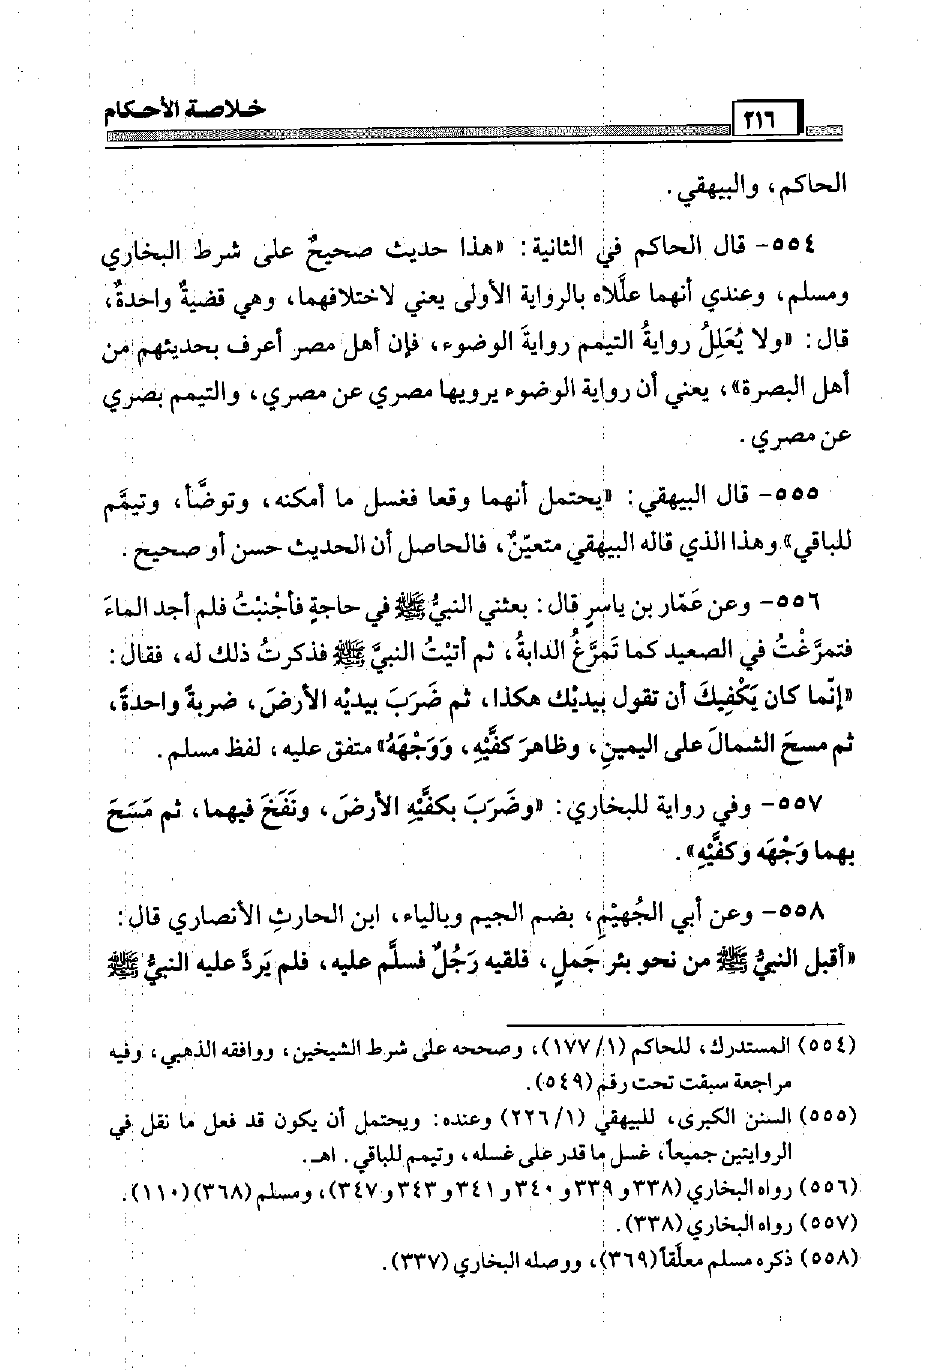 خلاصة الأحكام
٢١٦
الحاكم، والبيهقي.
٥٥٤- قال الحاكم في الثانية: «هذا حديث صحيحٌ على شرط البخاري
ومسلم، وعندي أنهما علَّلاه بالرواية الأولى يعني لاختلافهما، وهي قضيةٌ واحدةٌ،
قال: «ولا يُعَلِلُ روايةُ التيمم روايةَ الوضوء، فإن أهل مصر أعرف بحديثهم من
أهل البصرة»، يعني أن رواية الوضوء يرويها مصري عن مصري، والتيمم بصري
عن مصري.
٥٥٥- قال البيهقي: «يحتمل أنهما وقعا فغسل ما أمكنه، وتوضَّأ، وتيمَّم
للباقي» وهذا الذي قاله البيهقي متعيّنٌ، فالحاصل أن الحديث حسن أو صحيح.
٥٥٦- وعن عَمّار بن ياسرٍ قال: بعثني النبيُّ ﷺ في حاجةٍ فأجْنبْتُ فلم أجد الماءَ
فتمرَّغْتُ في الصعيد كما تَمرَّغُ الدابةُ، ثم أتيْتُ النبيَّ ﷺ فذكرتُ ذلك له، فقال:
«إنّما كان يَكْفِيكَ أن تقول بيديْك هكذا، ثم ضَرَبَ بيديْه الأرضَ، ضربةً واحدةً،
ثم مسحَ الشمالَ على اليمينِ، وظاهرَ كفَّيْهِ، وَوَجْهَهُ» متفق عليه، لفظ مسلم.
٥٥٧- وفي رواية للبخاري: «وضَرَبَ بكفَّيْهِ الأرضَ، ونَفَخَ فيهما، ثم مَسَحَ
بهما وَجْهَه وكفَّيْهِ».
٥٥٨- وعن أبي الجُهيْمِ، بضم الجيم وبالياء، ابن الحارثِ الأنصاري قال:
«أقبل النبيُّ ﷺ من نحو بئر جَملٍ، فلقيه رَجُلٌ فسلَّم عليه، فلم يَردَّ عليه النبيُّ ﷺ
(٥٥٤) المستدرك، للحاكم (١/ ١٧٧)، وصححه على شرط الشيخين، ووافقه الذهبي، وفيه
مراجعة سبقت تحت رقم (٥٤٩).
(٥٥٥) السنن الكبرى، للبيهقي (١/ ٢٢٦) وعنده: ويحتمل أن يكون قد فعل ما نقل في
الروايتين جميعاً، غسل ما قدر على غسله، وتيمم للباقي. اهـ.
(٥٥٦) رواه البخاري (٣٣٨ و ٣٣٩ و ٣٤٠ و ٣٤١ و ٣٤٣ و ٣٤٧)، ومسلم (٣٦٨) (١١٠).
(٥٥٧) رواه البخاري (٣٣٨).
(٥٥٨) ذكره مسلم معلّقاً (٣٦٩)، ووصله البخاري (٣٣٧).